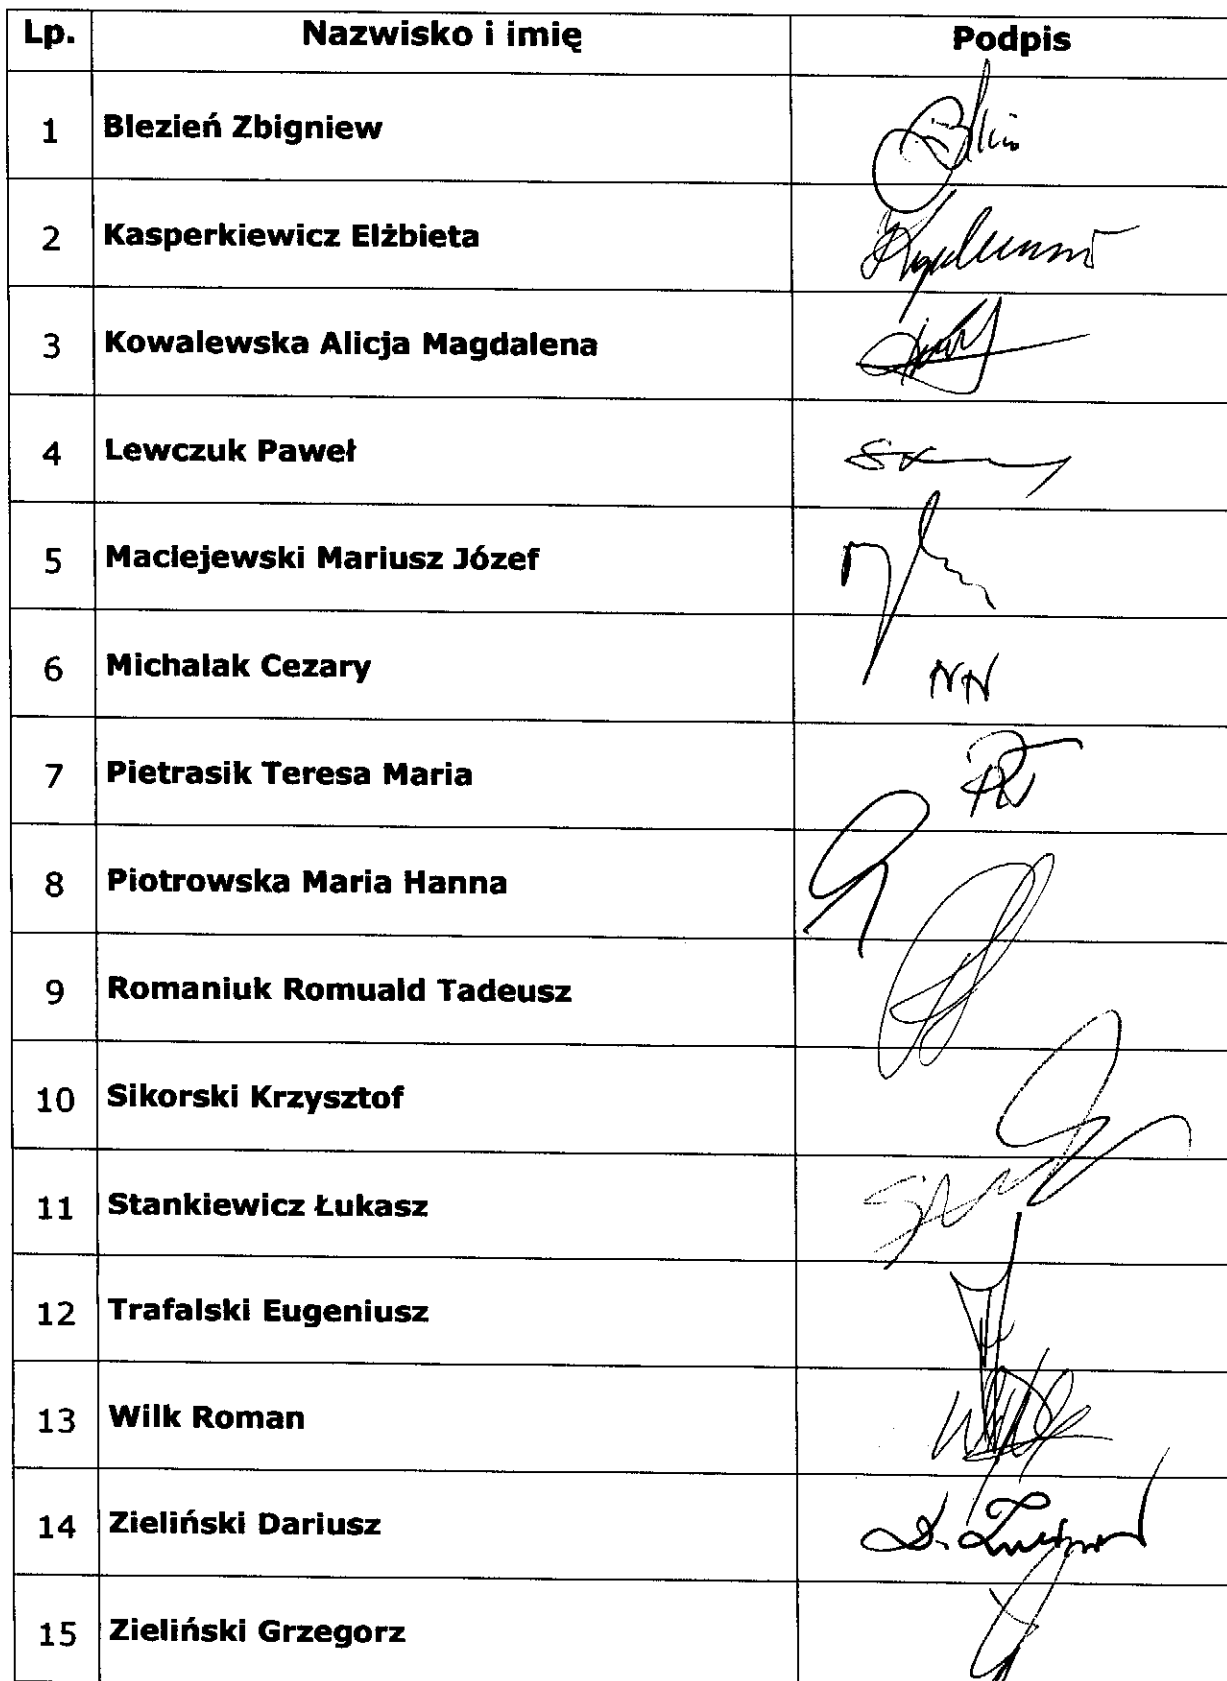 Lp. Nazwisko i imię Podpis
1 Blezień Zbigniew
2 Kasperkiewicz Elżbieta
3 Kowalewska Alicja Magdalena
4 Lewczuk Paweł
5 Maciejewski Mariusz Józef
6 Michalak Cezary NN
7 Pietrasik Teresa Maria
8 Piotrowska Maria Hanna
9 Romaniuk Romuald Tadeusz
10 Sikorski Krzysztof
11 Stankiewicz Łukasz
12 Trafalski Eugeniusz
13 Wilk Roman
14 Zieliński Dariusz
15 Zieliński Grzegorz